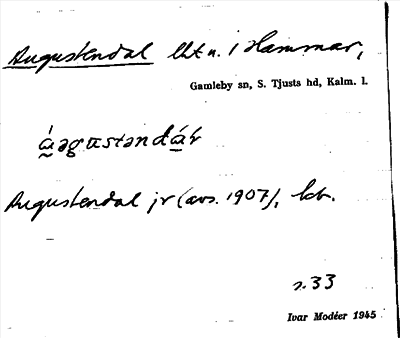 Augustendal lht u. i Hammar,
Gamleby sn, S. Tjusts hd, Kalm. l.
Augustendal jr (avs. 1907), kb.
s. 33
Ivar Modéer 1945